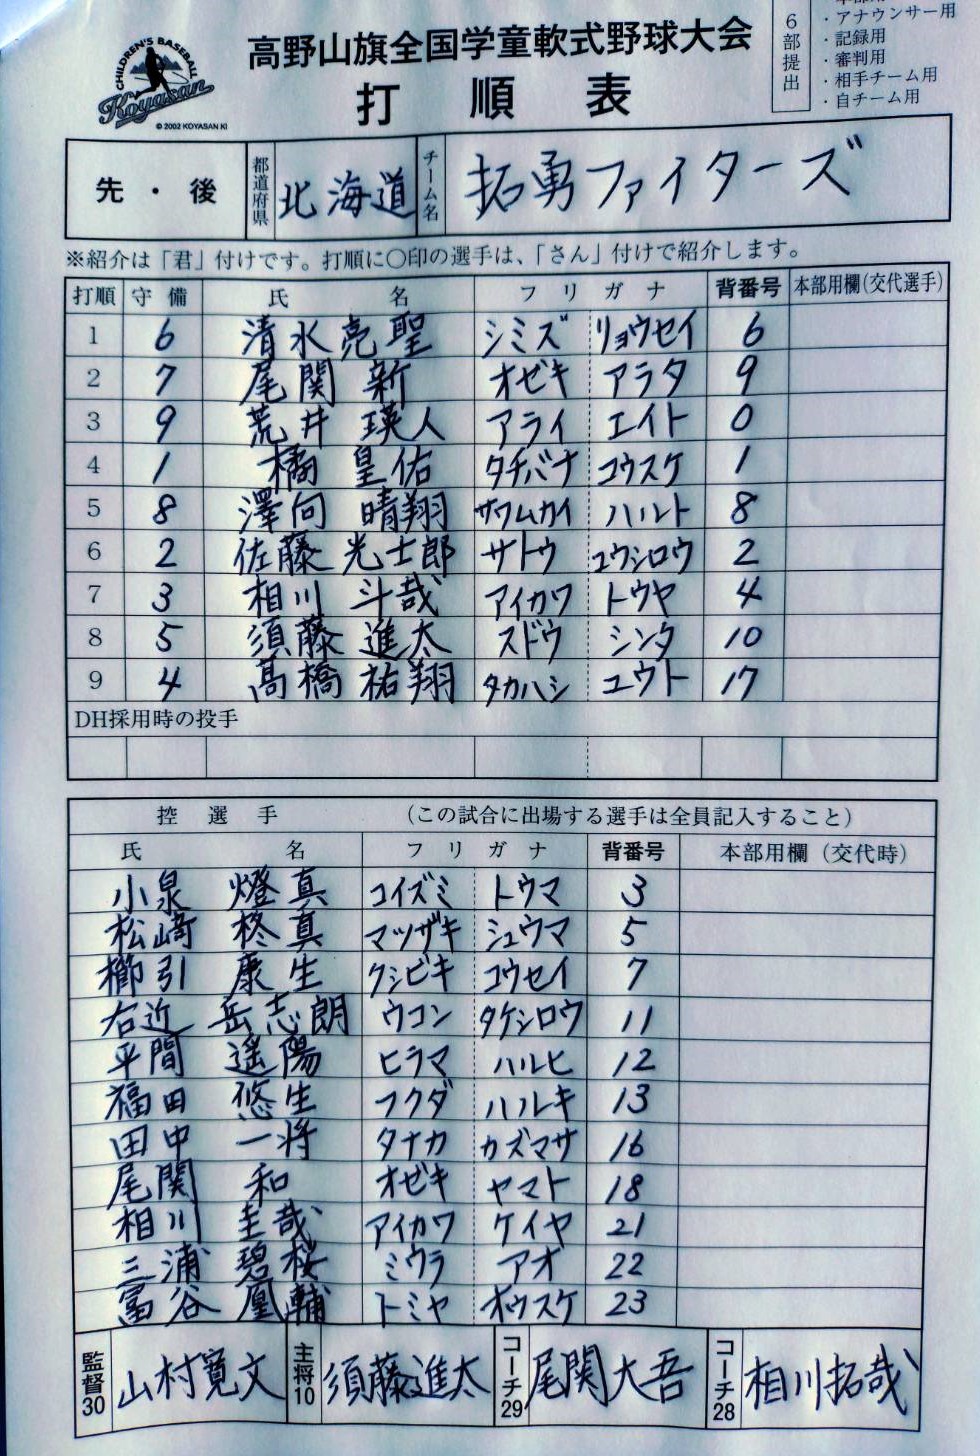 CHILDREN'S BASEBALL
Koyasan
© 2002 KOYASAN KI
高野山旗全国学童軟式野球大会
打順表
6部提出
・アナウンサー用
・記録用
・審判用
・相手チーム用
・自チーム用
先・後 都道府県 北海道 チーム名 拓勇ファイターズ
※紹介は「君」付けです。打順に〇印の選手は、「さん」付けで紹介します。
打順 守備 氏名 フリガナ 背番号 本部用欄(交代選手)
1 6 清水亮聖 シミズ リョウセイ 6
2 7 尾関 新 オゼキ アラタ 9
3 9 荒井 瑛人 アライ エイト 0
4 1 橘 皇佑 タチバナ コウスケ 1
5 8 澤向 晴翔 サワムカイ ハルト 8
6 2 佐藤 光士郎 サトウ コウシロウ 2
7 3 相川 斗哉 アイカワ トウヤ 4
8 5 須藤 進太 スドウ シンタ 10
9 4 髙橋 祐翔 タカハシ ユウト 17
DH採用時の投手
控選手 (この試合に出場する選手は全員記入すること)
氏名 フリガナ 背番号 本部用欄(交代時)
小泉 燈真 コイズミ トウマ 3
松﨑 柊真 マツザキ シュウマ 5
櫛引 康生 クシビキ コウセイ 7
右近 岳志朗 ウコン タケシロウ 11
平間 遥陽 ヒラマ ハルヒ 12
福田 悠生 フクダ ハルキ 13
田中 一将 タナカ カズマサ 16
尾関 和 オゼキ ヤマト 18
相川 圭哉 アイカワ ケイヤ 21
三浦 碧桜 ミウラ アオ 22
冨谷 凰輔 トミヤ オウスケ 23
監督30 山村寛文 主将10 須藤進太 コーチ29 尾関大吾 コーチ28 相川拓哉